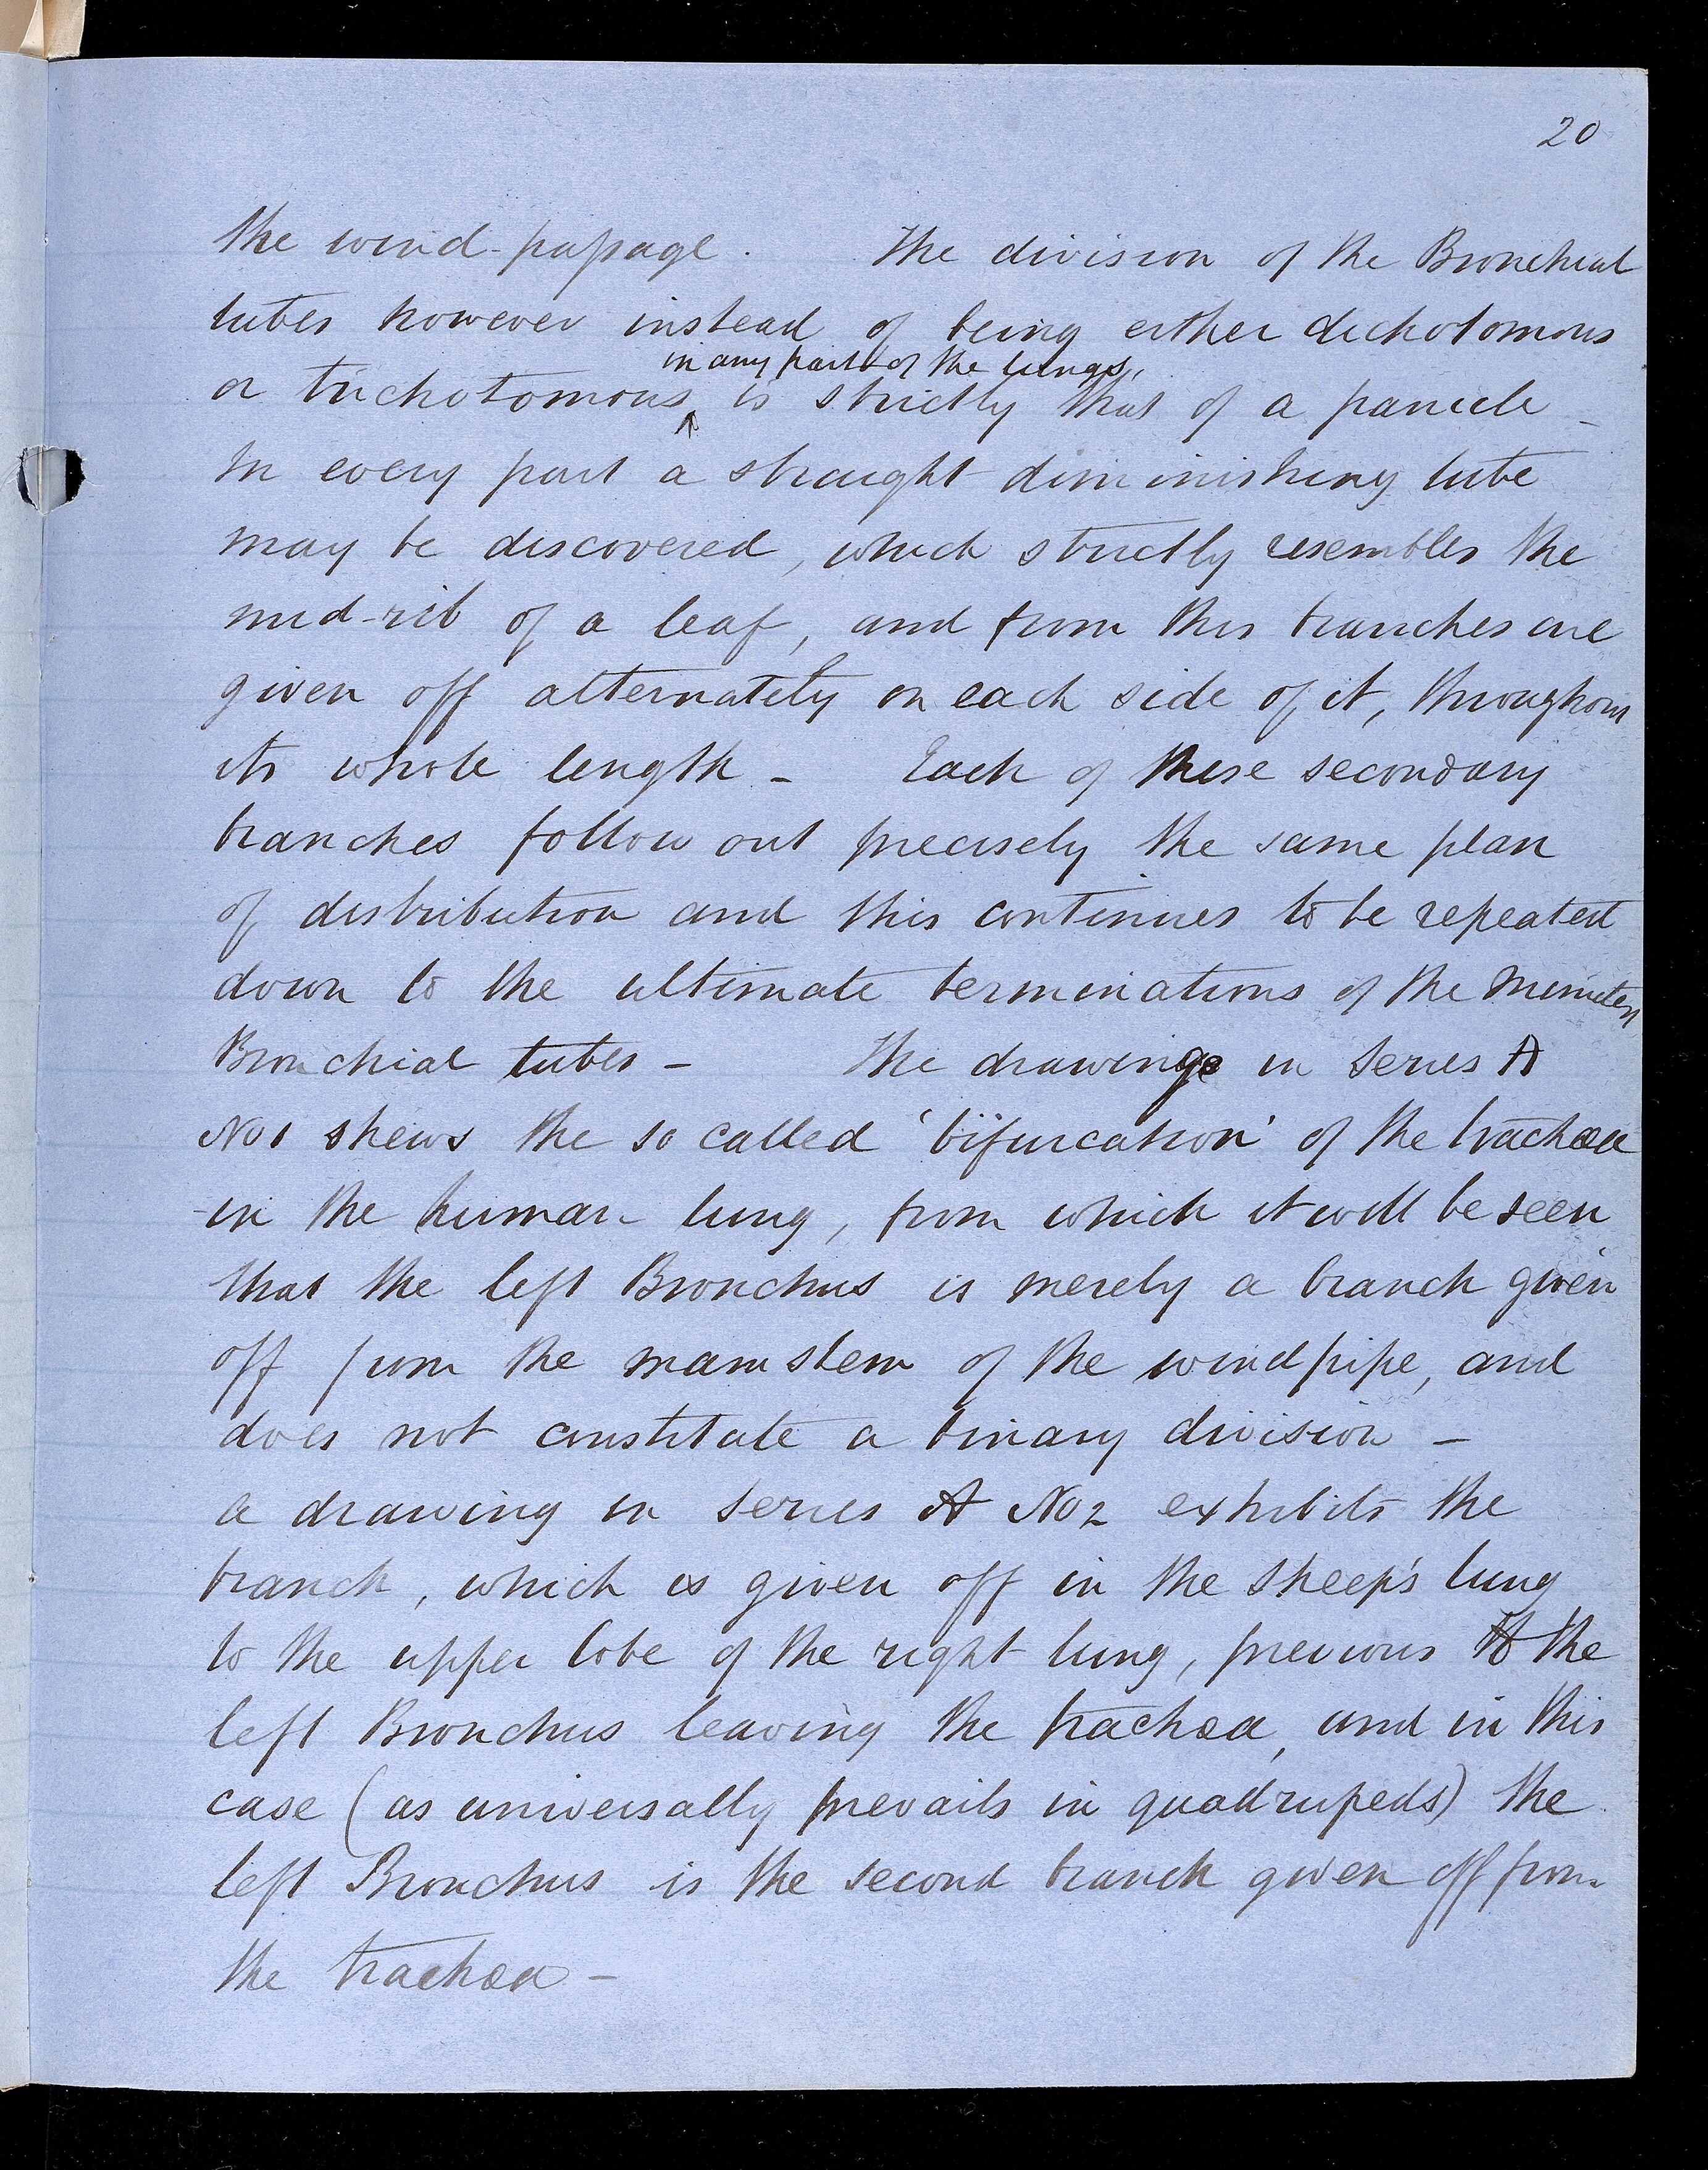 20
the wind-passage. The division of the Bronchial
tubes however instead of being either dichotomous
in any part of the lungs,
or trichotomous is strictly that of a panicle -
In every part a straight diminishing tube
may be discovered, which strictly resembles the
mid-rib of a leaf, and from this branches are
given off alternately on each side of it, throughout
its whole length - Each of these secondary
branches follow out precisely the same plan
of distribution and this continues to be repeated
down to the ultimate terminations of the minutest
Bronchial tubes - The drawings in Series A
No 1 shews the so called 'bifurcation' of the trachæa
in the human lung, from which it will be seen
that the left Bronchus is merely a branch given
off from the main stem of the windpipe, and
does not constitute a binary division -
a drawing in Series A No 2 exhibits the
branch, which is given off in the sheep's lung
to the upper lobe of the right lung, previous to the
left Bronchus leaving the trachæa, and in this
case (as universally prevails in quadrupeds) the
left Bronchus is the second branch given off from
the trachæa -